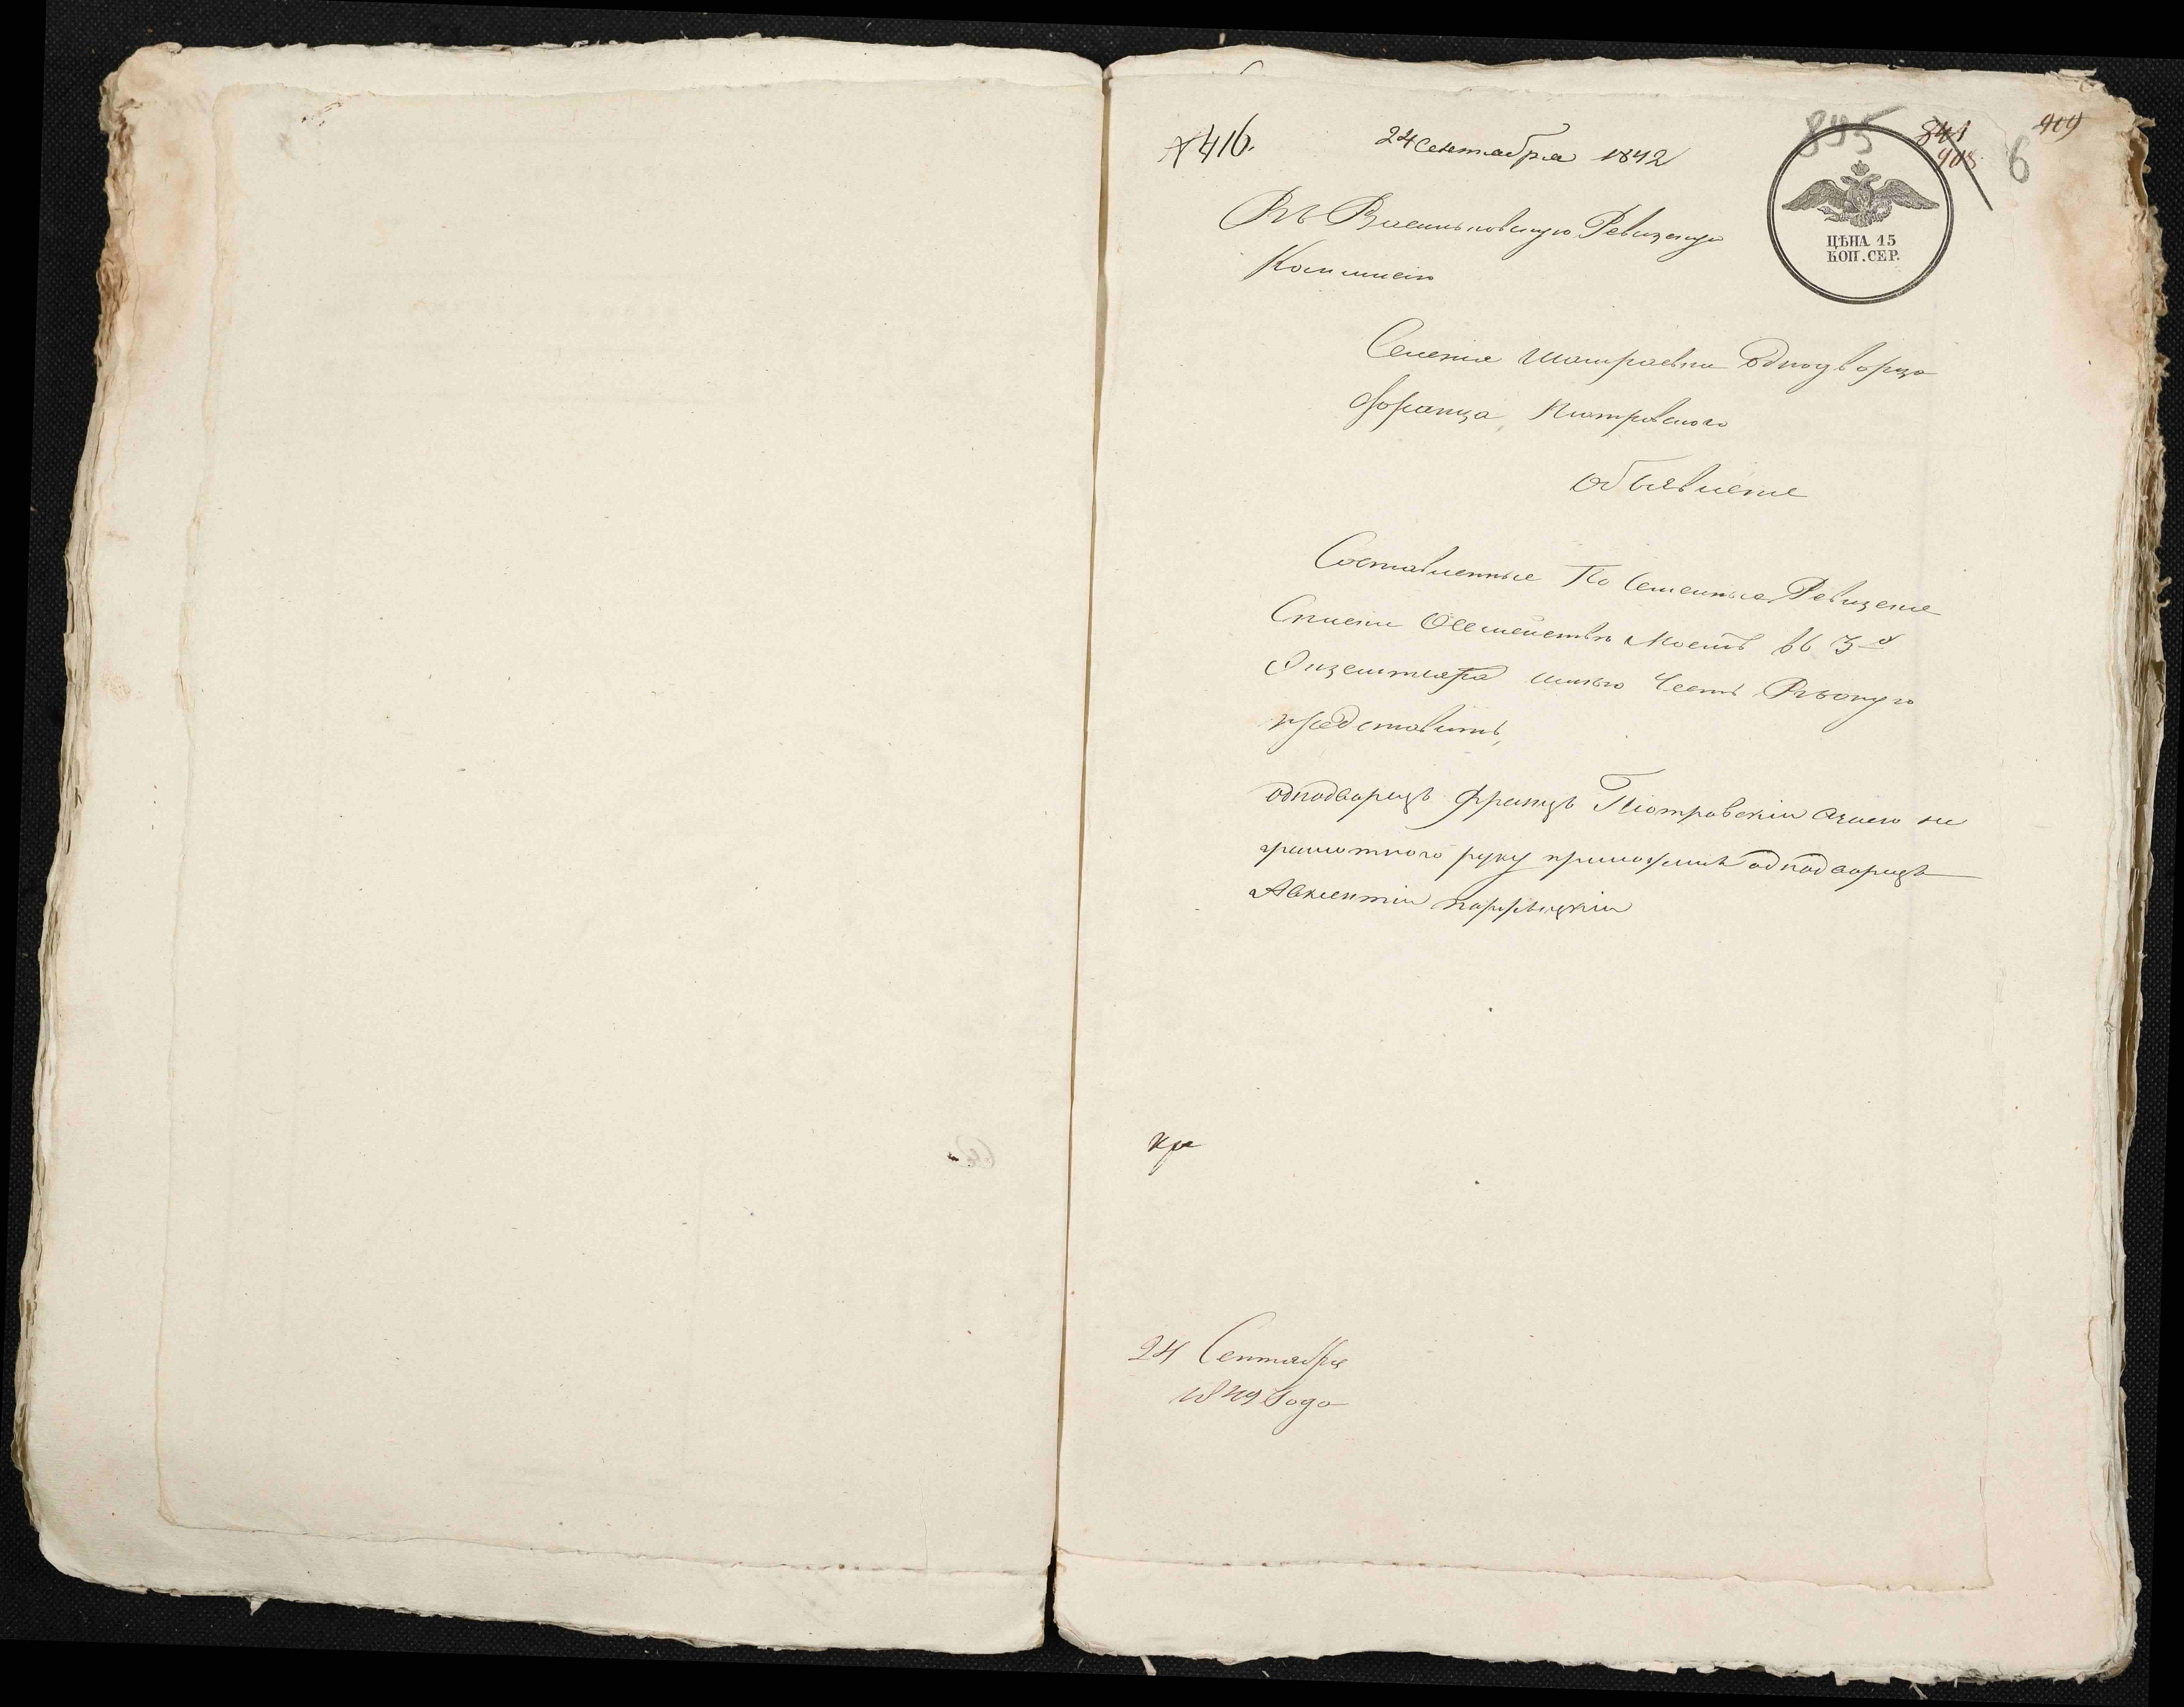 № 416.
24 Сентября 1842
895
841
408
409
6
ЦѢНА 15
КОП. СЕР.
Въ Васильковскую Ревизскую
Коммисію
Селенія Шамраевки Однодворца
Франца Піотровского
Объявленіе
Составленные По Семейные Ревизскіе
Списки О Семействѣ Моемъ въ 3х
Экземплярахъ имѣю Честь Въ оную
представить,
однодворецъ Францъ Піотровскій а за него не
грамотного руку приложилъ однодворецъ
Авксентій
24 Сентября
Года